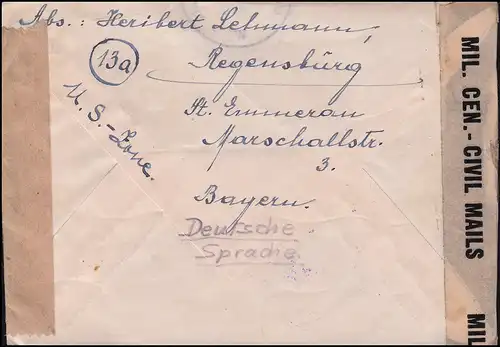 Abs.: Heribert Lehmann,
13a
Regensburg
U.S.-Zone.
St. Emmeran
Marschallstr.
3.
Bayern.
Deutsche
Sprache.
MIL. CEN. - CIVIL MAILS
MIL